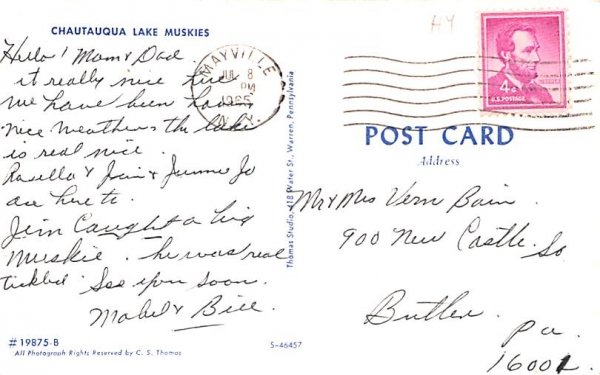 CHAUTAUQUA LAKE MUSKIES
Hello! Mom & Dad.
it really nice here
we have been having
nice weather & the lake
is real nice.
Rosella & Jim & Jimmie Jo
are here to.
Jim Caught a big
Muskie. he was real
tickled. See you soon.
Mabel & Bill
#19875-B
All Photograph Rights Reserved by C. S. Thomas
Thomas Studio, 418 Water St., Warren, Pennsylvania
S-46457
MAYVILLE
JUL 8
PM
1965
N.Y.
H4
4¢
U.S. POSTAGE
POST CARD
Address
Mr & Mrs Vern Bain
900 New Castle. So
Butler
Pa.
16001